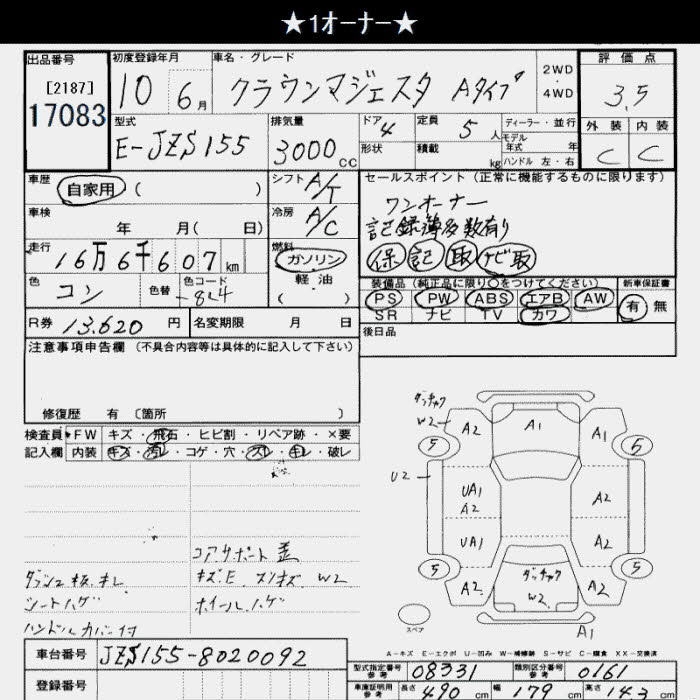 ★1オーナー★
出品番号 初度登録年月 車名・グレード 評価点
[2187]
17083
10 6月 クラウンマジェスタ Aタイプ 2WD・4WD 3.5
型式 排気量 ドア 定員 ディーラー・並行 外装 内装
E-JZS155 3000cc 4 5人 モデル年式 年 C C
形状 積載 kg ハンドル 左・右
車歴 自家用 ( ) シフト A/T セールスポイント (正常に機能するものに限ります)
ワンオーナー
車検 年 月( 日) 冷房 A/C 記録簿多数有り
走行 16万6千607km 燃料 ガソリン 保 記 取 ナビ取
軽油
( )
色 コン 色替 色コード -8L4
装備品 (純正品に限り○をつけてください) 新車保証書
PS PW ABS エアB AW 有・無
SR ナビ TV カワ
R券 13.620円 名変期限 月 日 後日品
注意事項申告欄 (不具合内容等は具体的に記入して下さい)
修復歴 有 〔箇所 〕
検査員 FW キズ・飛石・ヒビ割・リペア跡・×要
記入欄 内装 キズ・汚レ・コゲ・穴・スレ・キレ・破レ
ダッチャク
W2 A2 A1 A1
5 5
U2 UA1 A2 A2
UA1 A2
5 5
A2 ダッチャク W2 A2
スペア A1
コアサポート 歪
ダッシュ板.キレ キズE スリキズ W2
シートハゲ ホイールハゲ
ハンドルカバー付
A-キズ E-エクボ U-凹み W-補修跡 S-サビ C-腐食 XX-交換済
車台番号 JZS155-8020092
型式指定番号 参考 08331 類別区分番号 参考 0161
登録番号
車庫証明用 参考 長さ 490cm 幅 179cm 高さ 143cm